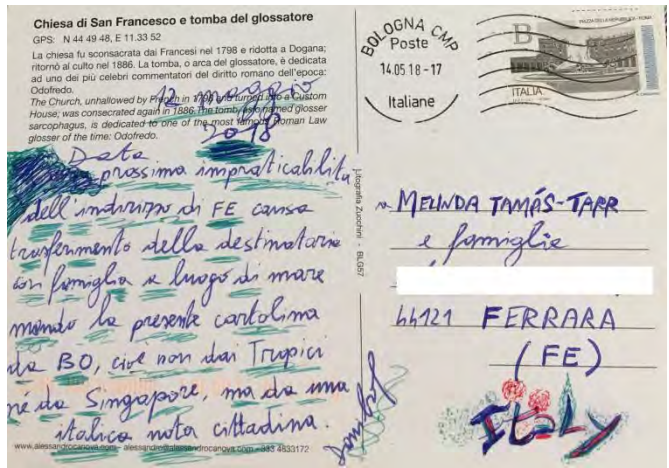 Chiesa di San Francesco e tomba del glossatore
GPS: N 44 49 48, E 11.33 52
La chiesa fu sconsacrata dai Francesi nel 1798 e ridotta a Dogana;
ritornò al culto nel 1886. La tomba, o arca del glossatore, è dedicata
ad uno dei più celebri commentatori del diritto romano dell'epoca:
Odofredo.
The Church, unhallowed by French in 1798 and turned into a Custom
House; was consecrated again in 1886. The tomb, also named glosser
sarcophagus, is dedicated to one of the most famous Roman Law
glosser of the time: Odofredo.
12 maggio
2018
Data
prossima impraticabilità
dell'indirizzo di FE causa
trasferimento della destinataria
con famiglia a luogo di mare
mando la presente cartolina
da BO, cioè non dai Tropici
né da Singapore, ma da una
italica nota cittadina.
www.alessandrocanova.com - alessandro@alessandrocanova.com - 333 4833172
Litografia Zucchini - BLG57
BOLOGNA CMP
Poste
14.05.18-17
Italiane
PIAZZA DELLA REPUBBLICA - ROMA
B
ITALIA
a MELINDA TAMÁS-TARR
e famiglia
44121 FERRARA
(FE)
ITALY